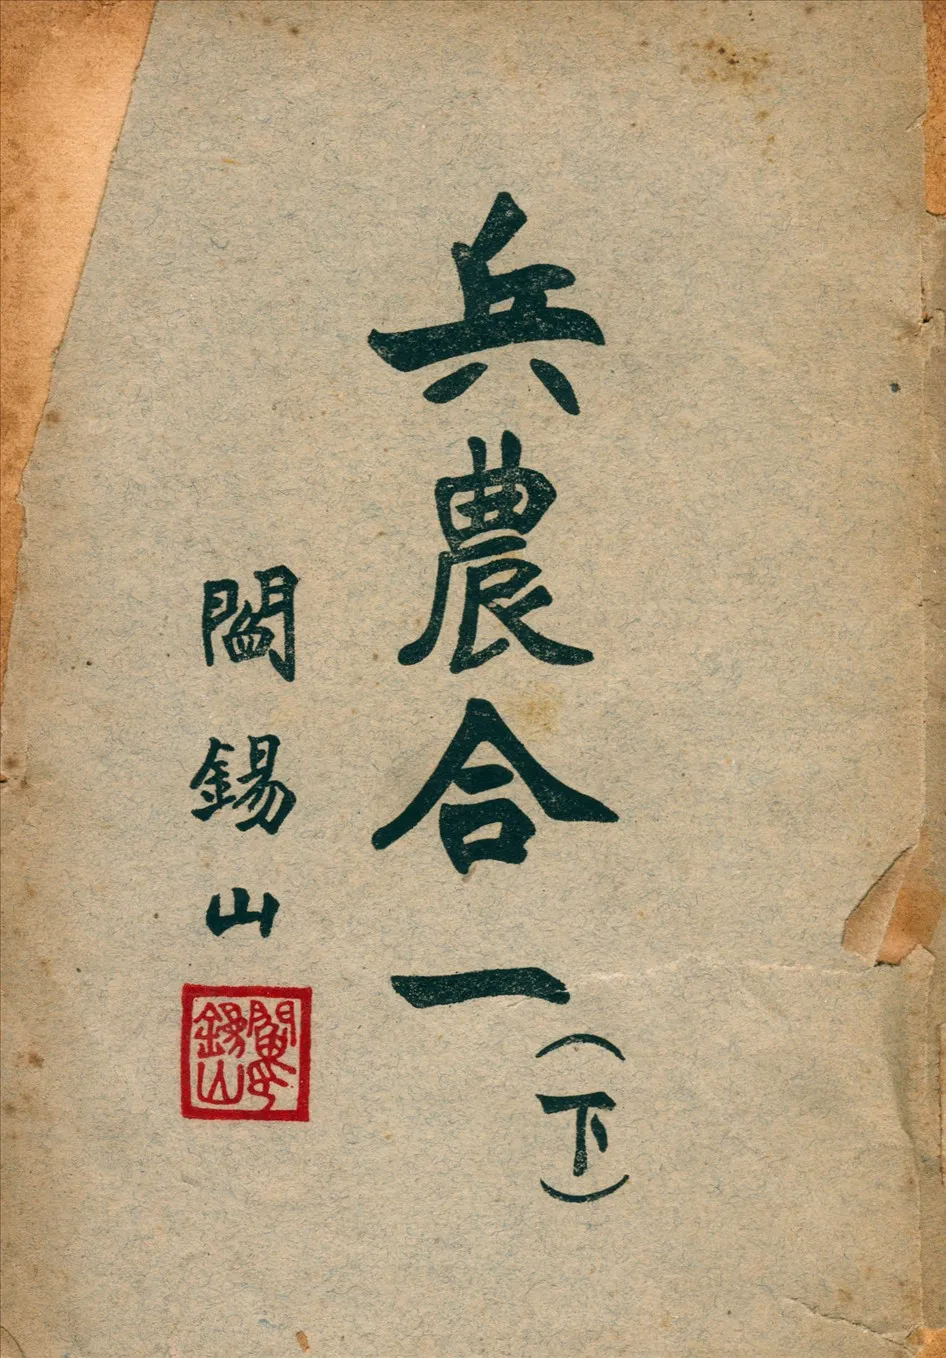 兵農合一（下）
閻錫山
閻錫山印